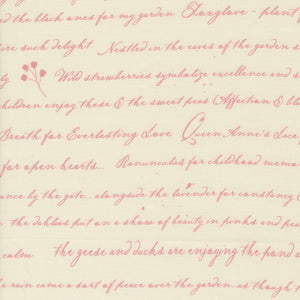 ed the black ones for my garden Foxglove - plant
ure such delight Nestled in the eaves of the garden s
ly Wild strawberries symbolize excellence and
children enjoy these & the sweet peas (Affection & bl
Breath for Everlasting Love Queen Anne's Lace
for open hearts... Ranunculus for childhood memor
ance by the gate... alongside the lavender for constancy
the dahlias put on a show of beauty in pinks and pea
calm the geese and ducks are enjoying the pond a
e rain came a sort of peace over the garden as though t